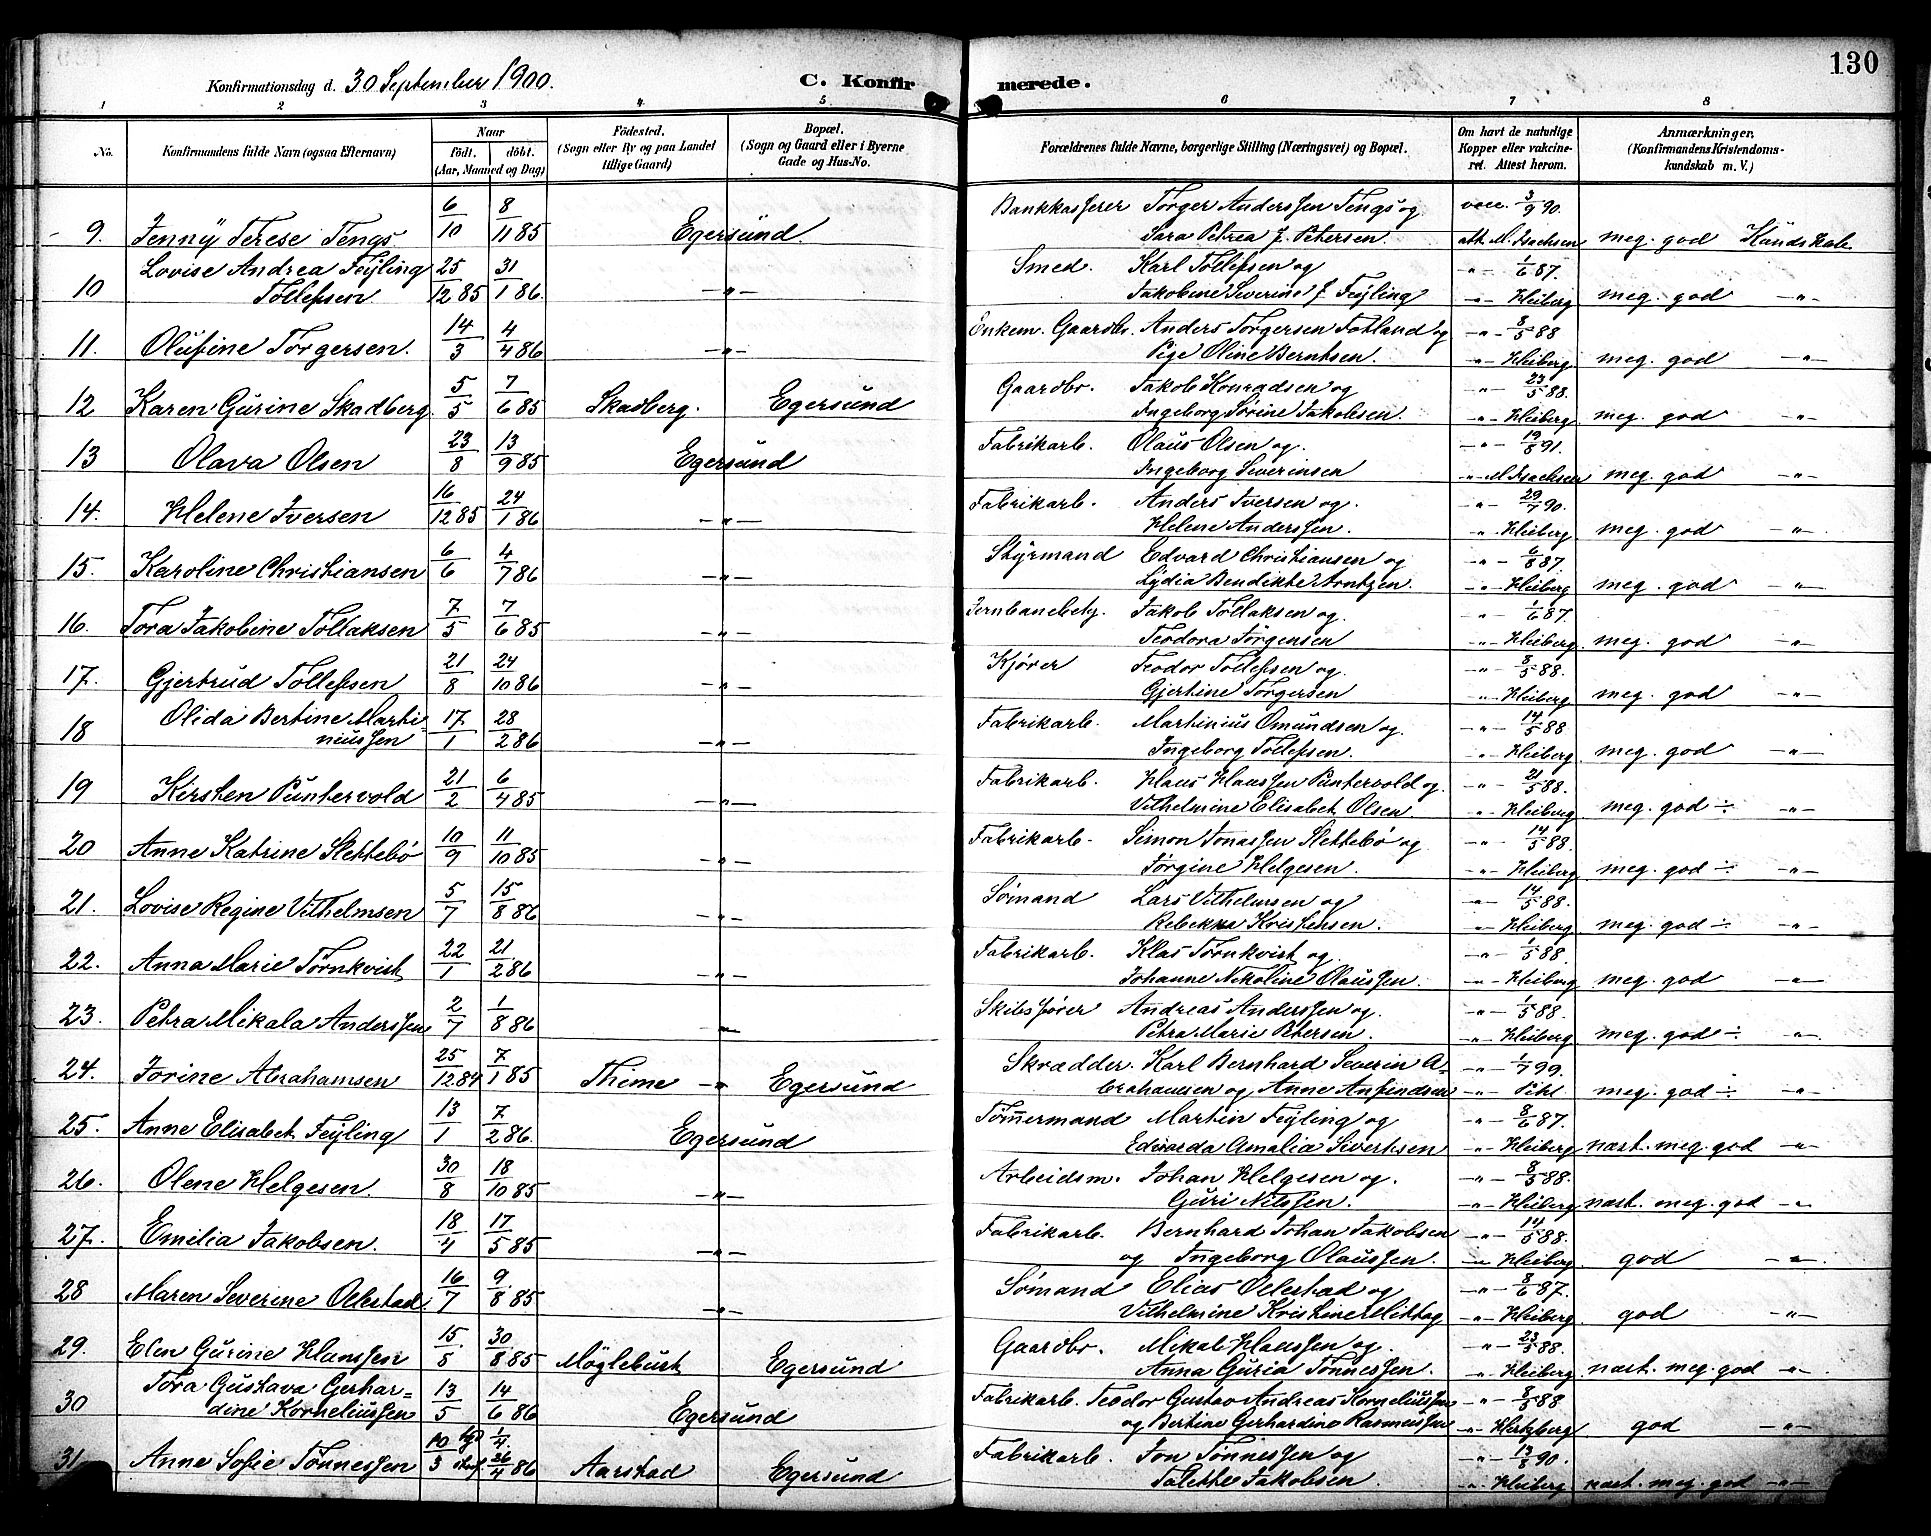 130
Konfirmationsdag d. 30 September 1900. C. Konfirmerede.
1 2 3 4. 5 6 7 8
No. Konfirmandens fulde Navn (ogsaa Efternavn) Naar födt. döbt. (Aar, Maaned og Dag) Födested. (Sogn eller By og paa Landet tillige Gaard) Bopæl. (Sogn og Gaard eller i Byerne Gade og Hus-No. Forældrenes fulde Navne, borgerlige Stilling (Næringsvei) og Bopæl. Om havt de naturlige Kopper eller vaccineret. Attest herom. Anmærkninger. (Konfirmandens Kristendomskundskab m. V.)
9. Jenny Terese Tengs 6/10 8/11 85 Egersund. Bankkasserer Torger Anderssen Tengs og vacc. 3/9 90.
Sara Petrea f. Petersen. att. M. Isachsen meg. god Kundskab
10 Lovise Andrea Feyling 25/12 85 31/1 86 —"— Smed. Karl Tollefsen og —"— 1/6 87.
Tollefsen Jakobine Severine f. Feyling —"— Kleiberg meg. god —"—
11. Olufine Torgersen. 14/3 4/4 86 —"— Enkem. Gaardbr. Anders Torgersen Fotland og —"— 8/5 88
Pige Oline Berntsen. —"— Kleiberg meg. god —"—
12 Karen Gurine Skadberg. 5/5 7/6 85 Skadberg. Egersund Gaardbr. Jakob Konradsen og —"— 23/5 88.
Ingeborg Sørine Jakobsen. —"— Kleiberg meg. god —"—
13 Olava Olsen 23/8 13/9 85 Egersund Fabrikarb. Olaus Olsen og. —"— 19/8 91.
Ingeborg Severinsen —"— M. Isachsen meg. god —"—
14. Helene Iversen 16/12 85 24/1 86 —"— Fabrikarb. Anders Iversen og. —"— 29/7 90.
Helene Anderssen. —"— Kleiberg meg. god —"—
15. Karoline Christiansen 6/6 4/7 86 —"— Styrmand Edvard Christiansen og —"— 6/8 87.
Lydia Bendikte Arntzen. —"— Kleiberg meg. god —"—
16. Tora Jakobine Tollaksen 7/5 7/6 85 —"— Jernbanebetj. Jakob Tollaksen og. —"— 1/6 87.
Teodora Jørgensen —"— Kleiberg meg. god —"—
17. Gjertrud Tollefsen 21/8 24/10 86 —"— Kjører Teodor Tollefsen og. —"— 8/5 88.
Gjertine Torgersen —"— Kleiberg meg. god —"—
18 Olida Bertine Marti- 17/1 28/2 86 —"— Fabrikarb. Martinius Omundsen og. —"— 14/5 88
niussen Ingeborg Tollefsen. —"— Kleiberg meg. god —"—
19 Kersten Puntervold 21/2 6/4 85 —"— Fabrikarb. Klaus Klaussen Puntervold og. —"— 21/5 88.
Vilhelmine Elisabet Olsen. —"— Kleiberg meg. god ÷ —"—
20 Anne Katrine Slettebø 10/9 11/10 85 —"— Fabrikarb. Simon Jonassen Slettebø og —"— 14/5 88.
Jørgine Helgesen. —"— Kleiberg meg. god ÷ —"—
21. Lovise Regine Vilhelmsen 5/7 15/8 86 —"— Sømand Lars Vilhelmsen og —"— 14/5 88.
Rebekka Kristensen. —"— Kleiberg meg. god ÷ —"—
22. Anna Marie Törnkvist 22/1 21/2 86 —"— Fabrikarb. Klas Törnkvist og. —"— 1/5 88.
Johanne Nikoline Olaussen. —"— Kleiberg meg. god —"—
23. Petra Mikala Anderssen 2/7 1/8 86 —"— Skibsfører Andreas Anderssen og. —"— 1/5 88.
Petra Marie Petersen. —"— Kleiberg meg. god ÷ —"—
24. Jorine Abrahamsen 25/12 84 7/1 85 Thime —"— Egersund Skrædder. Karl Bernhard Severin A- —"— 1/7 99.
brahamsen og Anne Anfindsen —"— Pihl. meg. god ÷ —"—
25. Anne Elisabet Feyling 13/1 7/2 86. Egersund Tømmermand Martin Feyling og —"— 8/6 87.
Edvarda Amalia Sivertsen —"— Kleiberg næst. meg. god —"—
26. Olene Helgesen. 30/8 18/10 85 —"— Arbeidsm. Johan Helgesen og. —"— 8/5 88.
Guri Nilssen. —"— Kleiberg næst. meg. god —"—
27. Emilia Jakobsen. 18/4 17/5 85 —"— Fabrikarb. Bernhard Johan Jakobsen —"— 14/5 88.
og Ingeborg Olaussen. —"— Kleiberg god —"—
28 Maren Severine Ollestad 16/7 9/8 85 —"— Sømand Elias Ollestad og —"— 8/6 87.
Vilhelmine Kristine Mittag —"— Kleiberg. god —"—
29. Elen Gurine Klaussen 15/8 30/8 85 Møgleburt Egersund Gaardbr. Mikal Klaussen og. —"— 23/5 88.
Anna Guria Tønnessen. —"— Kleiberg næst. meg. god —"—
30 Tora Gustava Gerhar- 13/5 14/6 86 Egersund Fabrikarb. Teodor Gustav Andreas Korneliussen —"— 8/5 88
dine Korneliussen og Bertine Gerhardine Rasmussen —"— Hertzberg god —"—
31 Anne Sofie Tønnessen 10/3 1/4. 26/4 86 Aarstad Egersund Fabrikarb. Jon Tønnessen og —"— 13/8 90.
Talette Jakobsen. —"— Kleiberg. næst. meg. god —"—